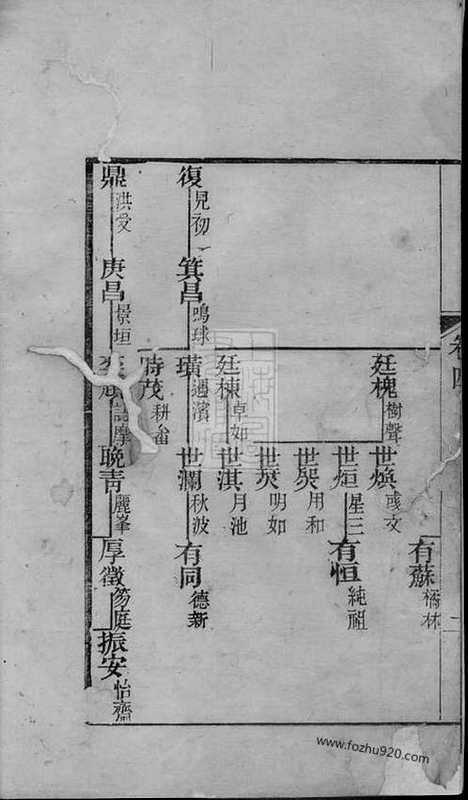 卷四
有蘇 橘林
廷槐 樹聲
世煥 彧文
世烜 星三 有恒 純祖
世榘 用和
世煐 明如
廷棟 卓如 世淇 月池
復 見初 箕昌 鳴球 璜 遇濱 世瀾 秋波 有同 德新
時茂 耕畬
鼎 洪受 庚昌 景垣 詩摩 晚青 麗峯 厚徵 笏庭 振安 怡齋
www.fozhu920.com